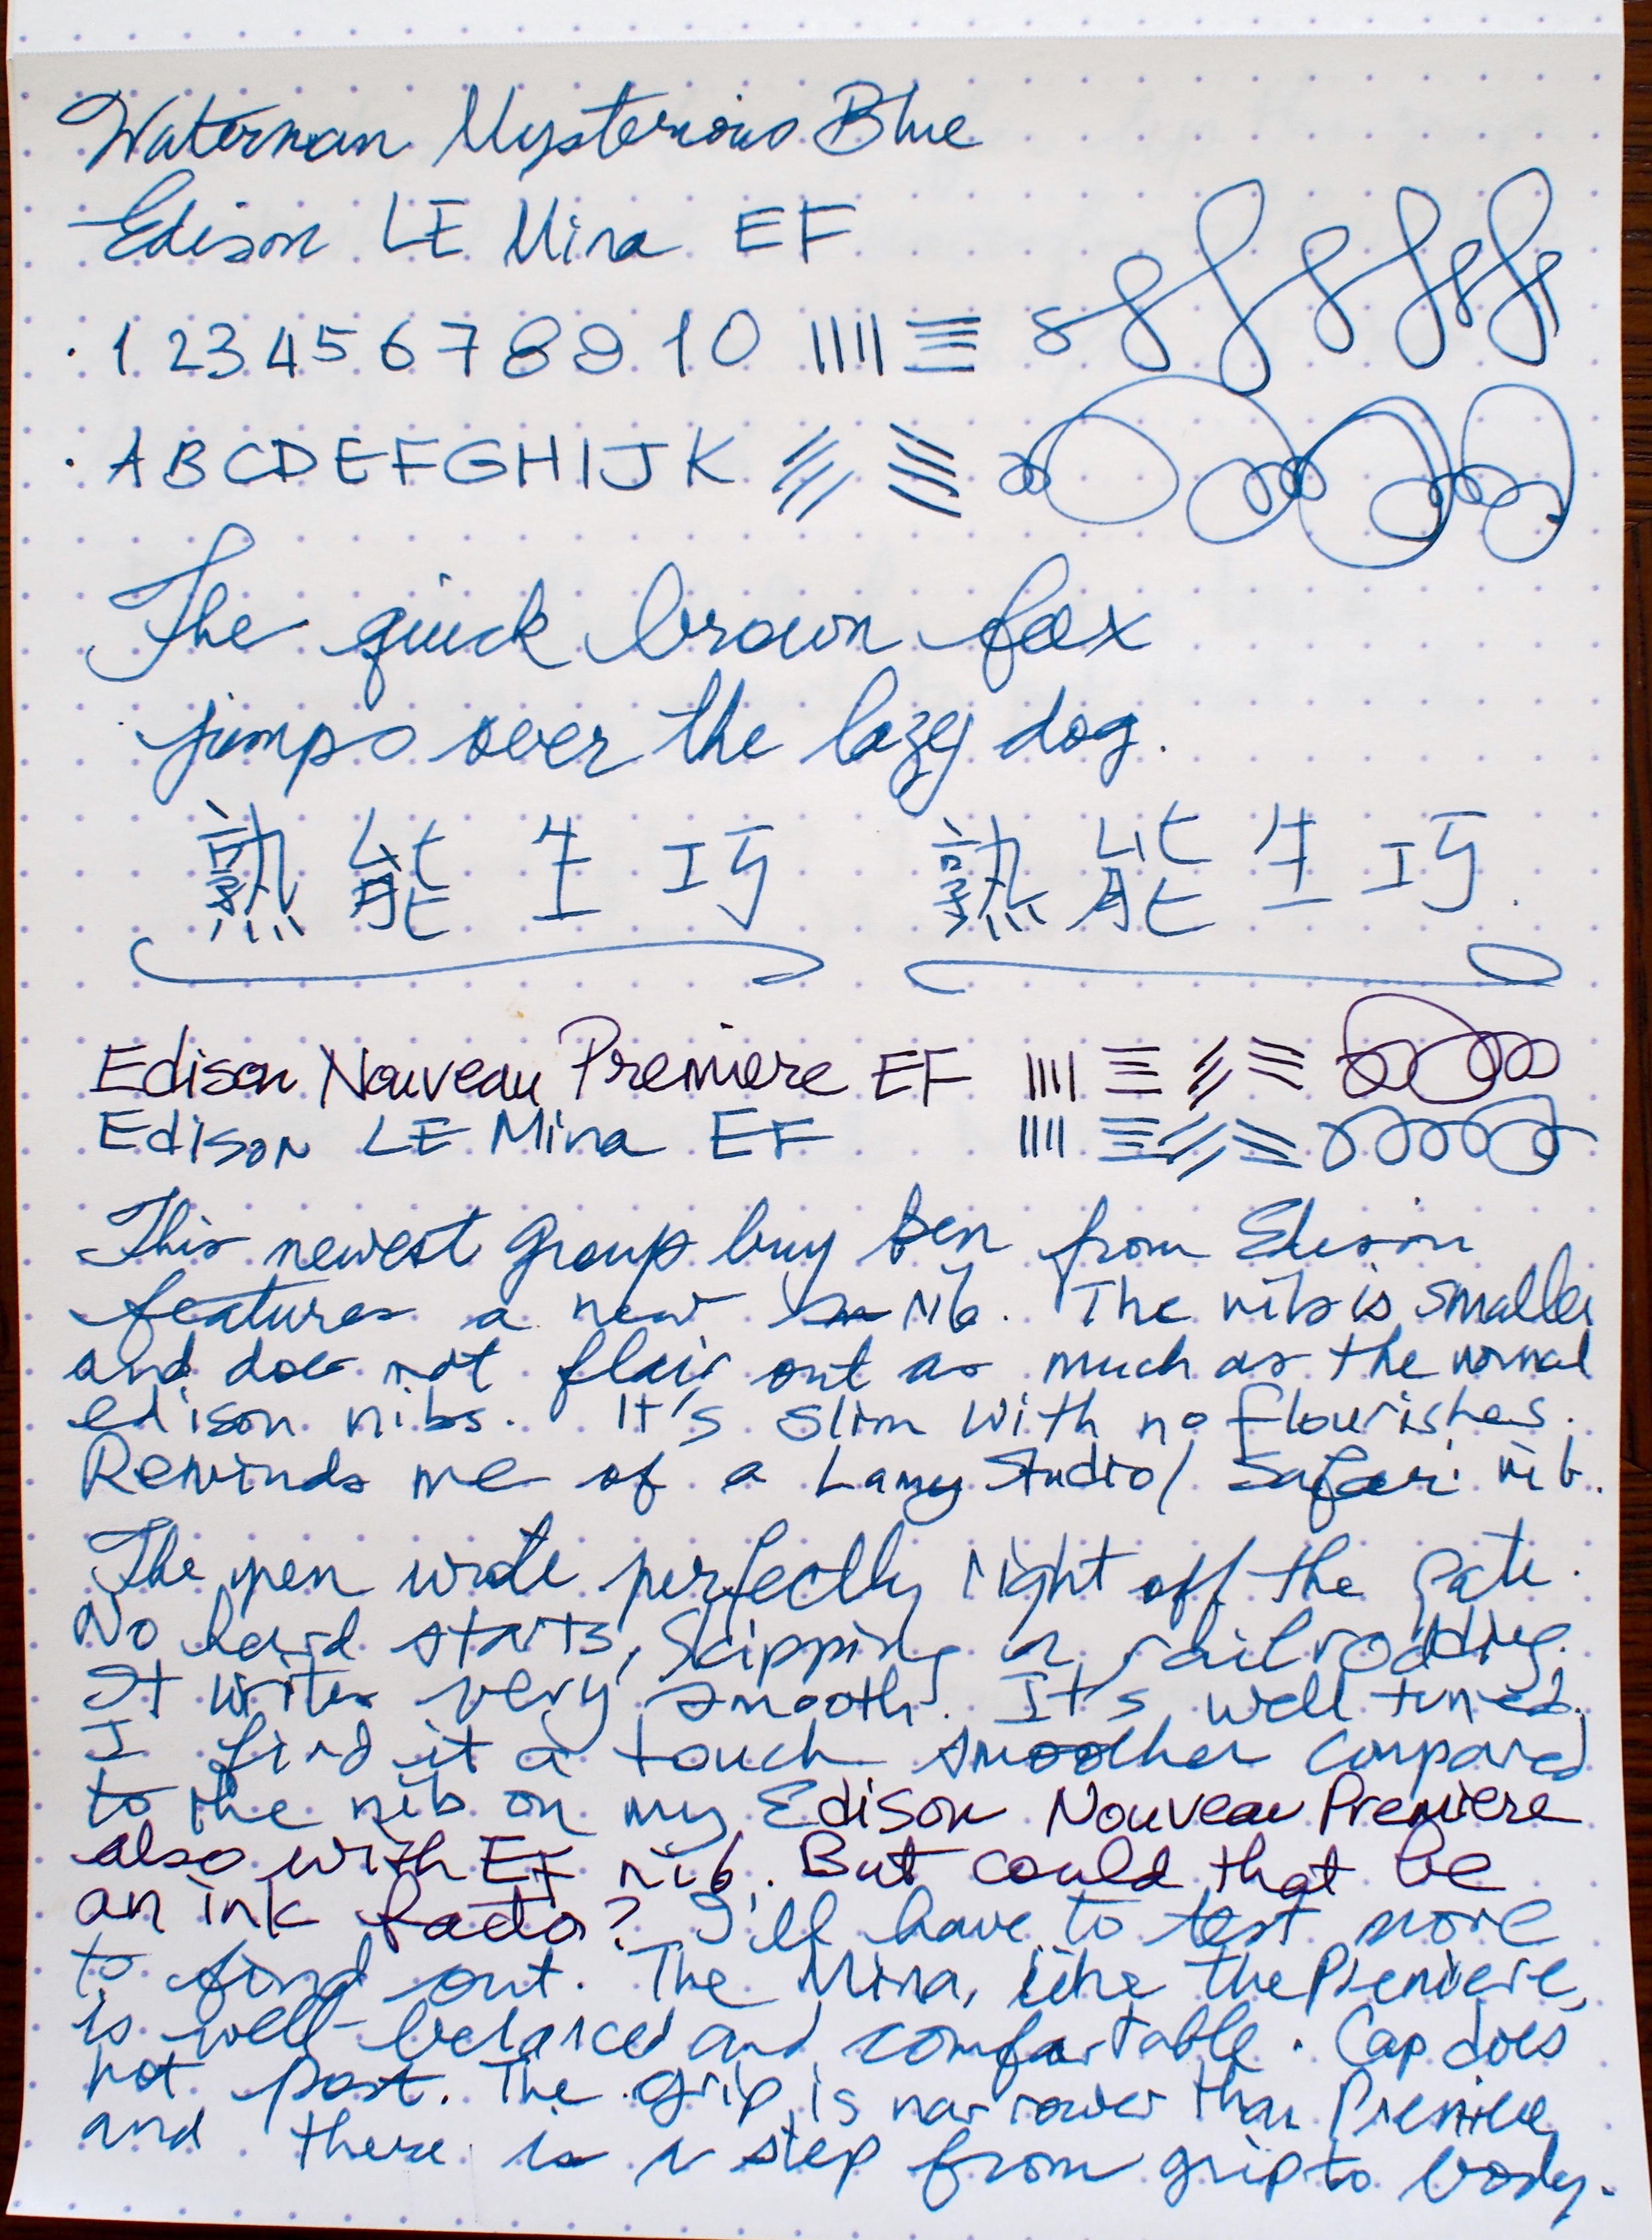 Waterman Mysterious Blue
Edison LE Mina EF
1 2 3 4 5 6 7 8 9 10
A B C D E F G H I J K
The quick brown fox
jumps over the lazy dog.
熟能生巧 熟能生巧.
Edison Nouveau Premiere EF
Edison LE Mina EF
This newest group buy pen from Edison
features a new nib. The nib is smaller
and does not flair out as much as the normal
edison nibs. It's slim with no flourishes.
Reminds me of a Lamy Studio/Safari nib.
The pen wrote perfectly right off the gate.
No hard starts, skipping or railroading.
It writes very smooth. It's well tuned.
I find it a touch smoother compared
to the nib on my Edison Nouveau Premiere
also with EF nib. But could that be
an ink factor? I'll have to test more
to find out. The Mina, like the Premiere,
is well-balanced and comfortable. Cap does
not post. The grip is narrower than Premiere
and there is a step from grip to body.